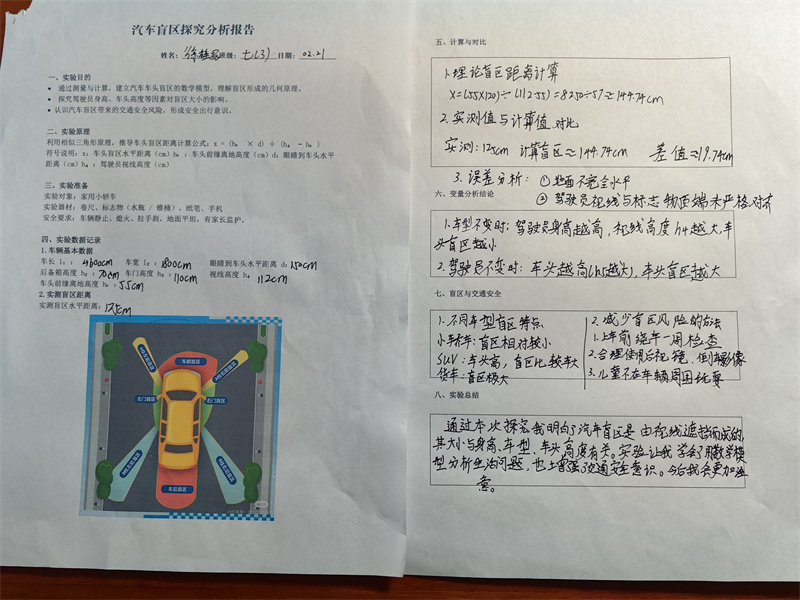 汽车盲区探究分析报告
姓名： 班级：七(3) 日期：02.21
一、实验目的
• 通过测量与计算，建立汽车车头盲区的数学模型，理解盲区形成的几何原理。
• 探究驾驶员身高、车头高度等因素对盲区大小的影响。
• 认识汽车盲区带来的交通安全风险，形成安全出行意识。
二、实验原理
利用相似三角形原理，推导车头盲区距离计算公式：x = (h₅ × d) ÷ (h₄ - h₅)
符号说明：x：车头盲区水平距离（cm）h₅：车头前缘离地高度（cm）d：眼睛到车头水平
距离（cm）h₄：驾驶员视线高度（cm）
三、实验准备
实验对象：家用小轿车
实验器材：卷尺、标志物（水瓶 / 锥桶）、纸笔、手机
安全要求：车辆静止、熄火、拉手刹，地面平坦，有家长监护。
四、实验数据记录
1.车辆基本数据
车长 l₁：4600cm 车宽 l₂：1800cm 眼睛到车头水平距离 d：150cm
后备箱高度 h₂：70cm 车门高度 h₃：110cm 视线高度 h₄：112cm
车头前缘离地高度 h₅：55cm
2.实测盲区距离
实测盲区水平距离：125cm
车前盲区
A柱盲区
A柱盲区
左门盲区
右门盲区
车后盲区
五、计算与对比
1.理论盲区距离计算
X=(55X120)÷(112-55)=8250÷57≈144.74cm
2.实测值与计算值对比
实测：125cm 计算盲区≈144.74cm 差值≈19.74cm
3.误差分析：①地面不完全水平
②驾驶员视线与标志物顶端未严格对齐
六、变量分析结论
1.车型不变时：驾驶员身高越高，视线高度h4越大，车
头盲区越小
2.驾驶员不变时：车头越高(h5越大)，车头盲区越大
七、盲区与交通安全
1.不同车型盲区特点
小轿车：盲区相对较小
SUV：车头高，盲区比较大
货车：盲区极大
2.减少盲区风险的方法
1.上车前绕车一周检查
2.合理使用后视镜、倒车影像
3.儿童不在车辆周围玩耍
八、实验总结
通过本次探究我明白了汽车盲区是由视线遮挡而成的，
其大小与身高、车型、车头高度有关。实验让我学会了用数学模
型分析生活问题，也增强了交通安全意识。今后我会更加注
意。